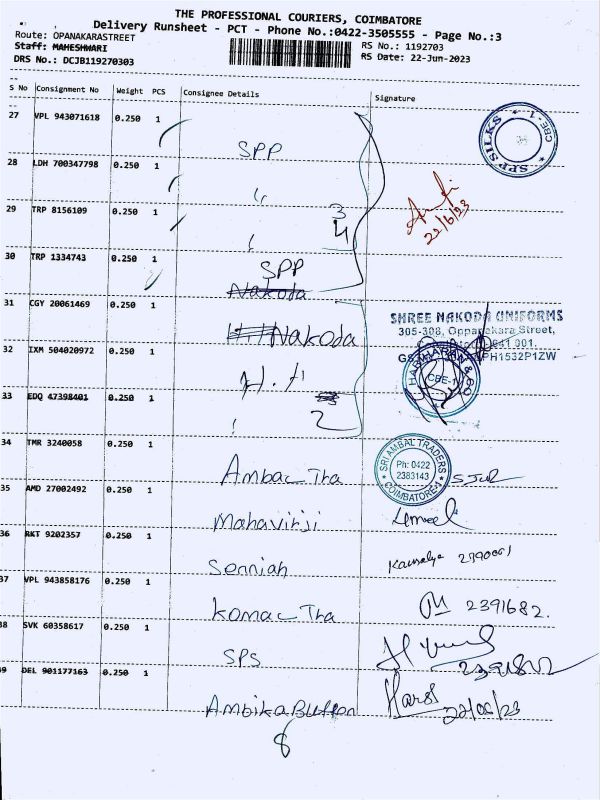 THE PROFESSIONAL COURIERS, COIMBATORE
Delivery Runsheet - PCT - Phone No.:0422-3505555 - Page No.:3
Route: OPANAKARASTREET
RS No.: 1192703
Staff: MAHESHWARI
RS Date: 22-Jun-2023
DRS No.: DCJB119270303
S No Consignment No Weight PCS Consignee Details Signature
27 VPL 943071618 0.250 1
SPP
SPP SILKS * CBE-1
28 LDH 700347798 0.250 1
29 TRP 8156109 0.250 1
3
4
22/6/23
30 TRP 1334743 0.250 1
SPP
Nakoda
31 CGY 20061469 0.250 1
Nakoda
SHREE NAKODA UNIFORMS
305-308, Oppanakara Street,
641 001.
32 IXM 504020972 0.250 1
H.H
HARIHARAN & CO
CBE-1
33 EDQ 47398401 0.250 1
2
34 TMR 3240058 0.250 1
Ambac Tra
SRI AMBAL TRADERS
Ph: 0422
2383143
COIMBATORE-1
35 AMD 27002492 0.250 1
Mahavirji
36 RKT 9202357 0.250 1
Senniah
Kausalya
37 VPL 943858176 0.250 1
Komac Tra
2391682.
38 SVK 60358617 0.250 1
SPS
39 DEL 901177163 0.250 1
Ambika Button
22/06/23
8